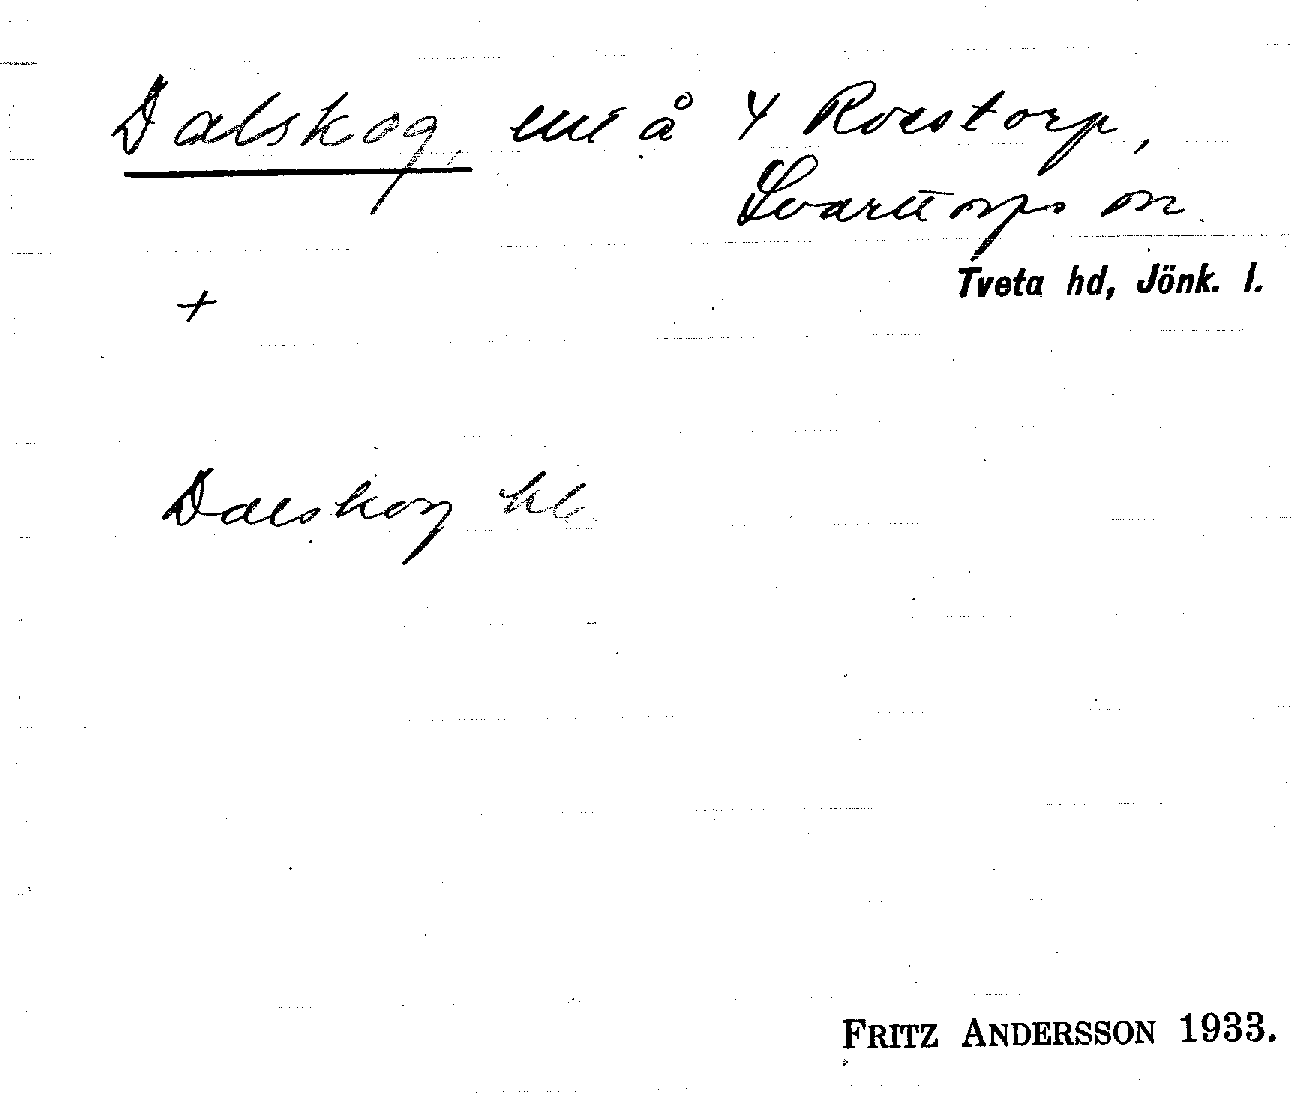 Dalskog, enl å 4 Roestorp,
Svarttorps sn.
Tveta hd, Jönk. l.
+
Dalskog hl
FRITZ ANDERSSON 1933.